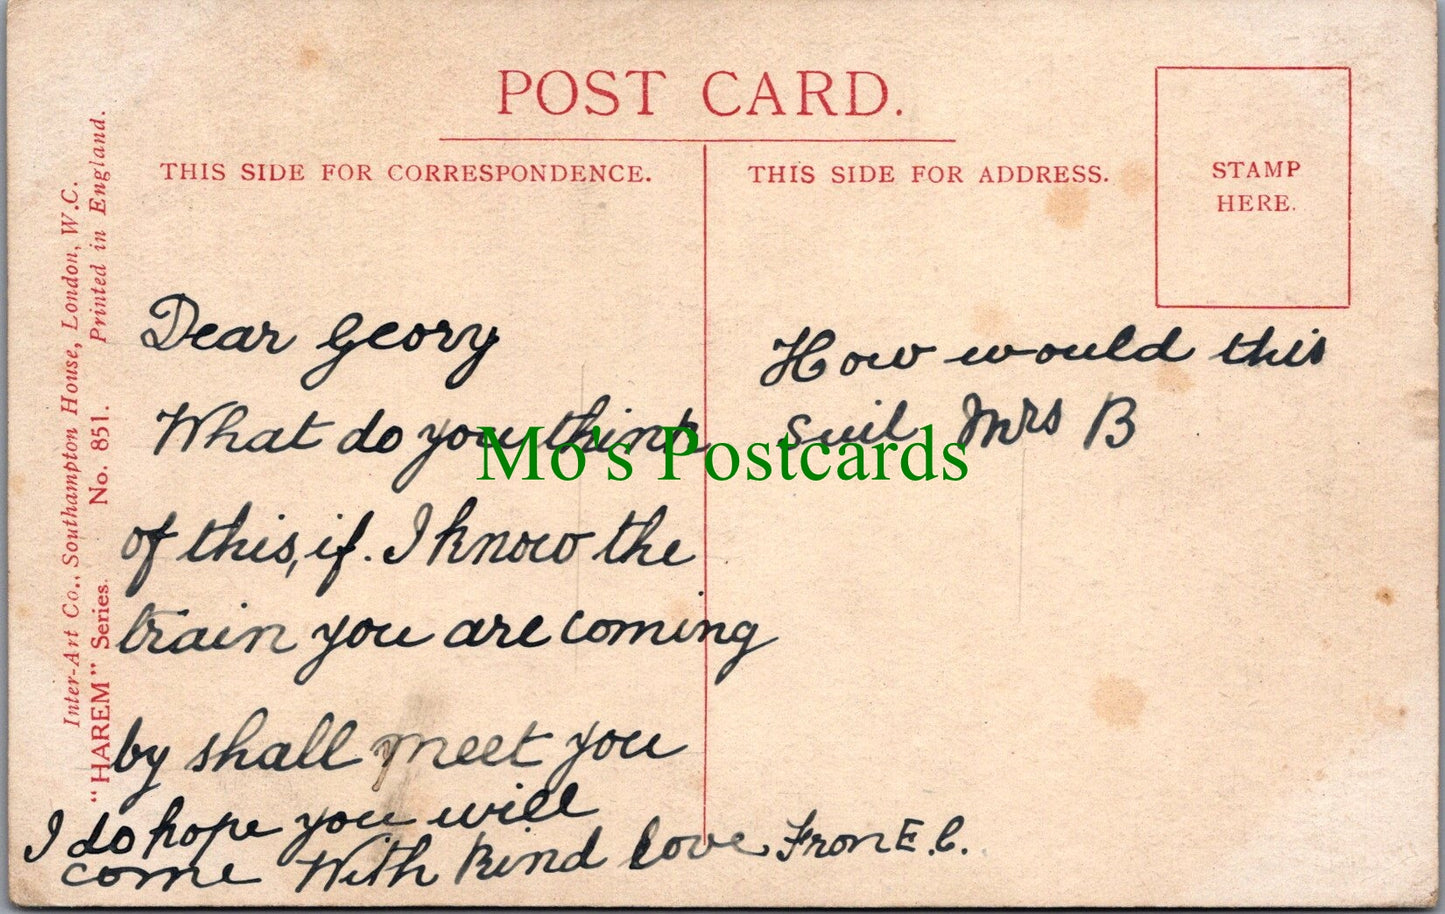 POST CARD.
THIS SIDE FOR CORRESPONDENCE.
THIS SIDE FOR ADDRESS.
STAMP
HERE.
Inter-Art Co., Southampton House, London, W.C.
"HAREM" Series. No. 851. Printed in England.
Dear Georgy
What do you think
of this, if. I know the
train you are coming
by shall meet you
I do hope you will
come With Kind love From E.C.
How would this
suit Mrs B
Mo's Postcards